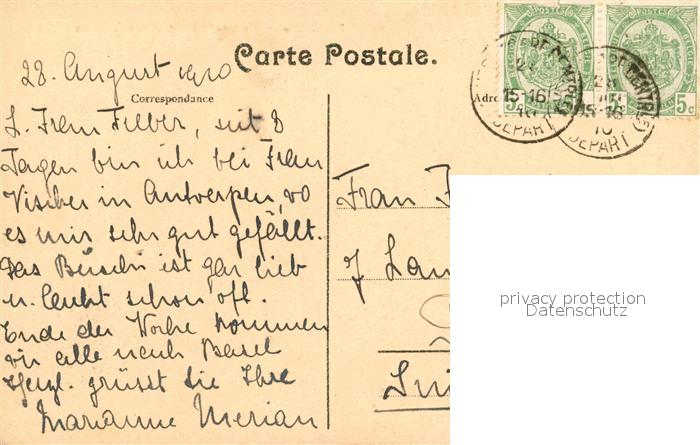 Carte Postale.
28. August 1910
Correspondance
L. Frau Fieber, seit 8
Tagen bin ich bei Frau
Vischer in Antwerpen, wo
es mir sehr gut gefällt.
Das Büschi ist gar lieb
u. lacht schon oft.
Ende der Woche kommen
wir alle nach Basel
Herzl. grüsst Sie Ihre
Marianne Merian
POSTES POSTES
5c 5c
15-16
DEPART
15-16
10
DEPART
Frau F
privacy protection
Datenschutz